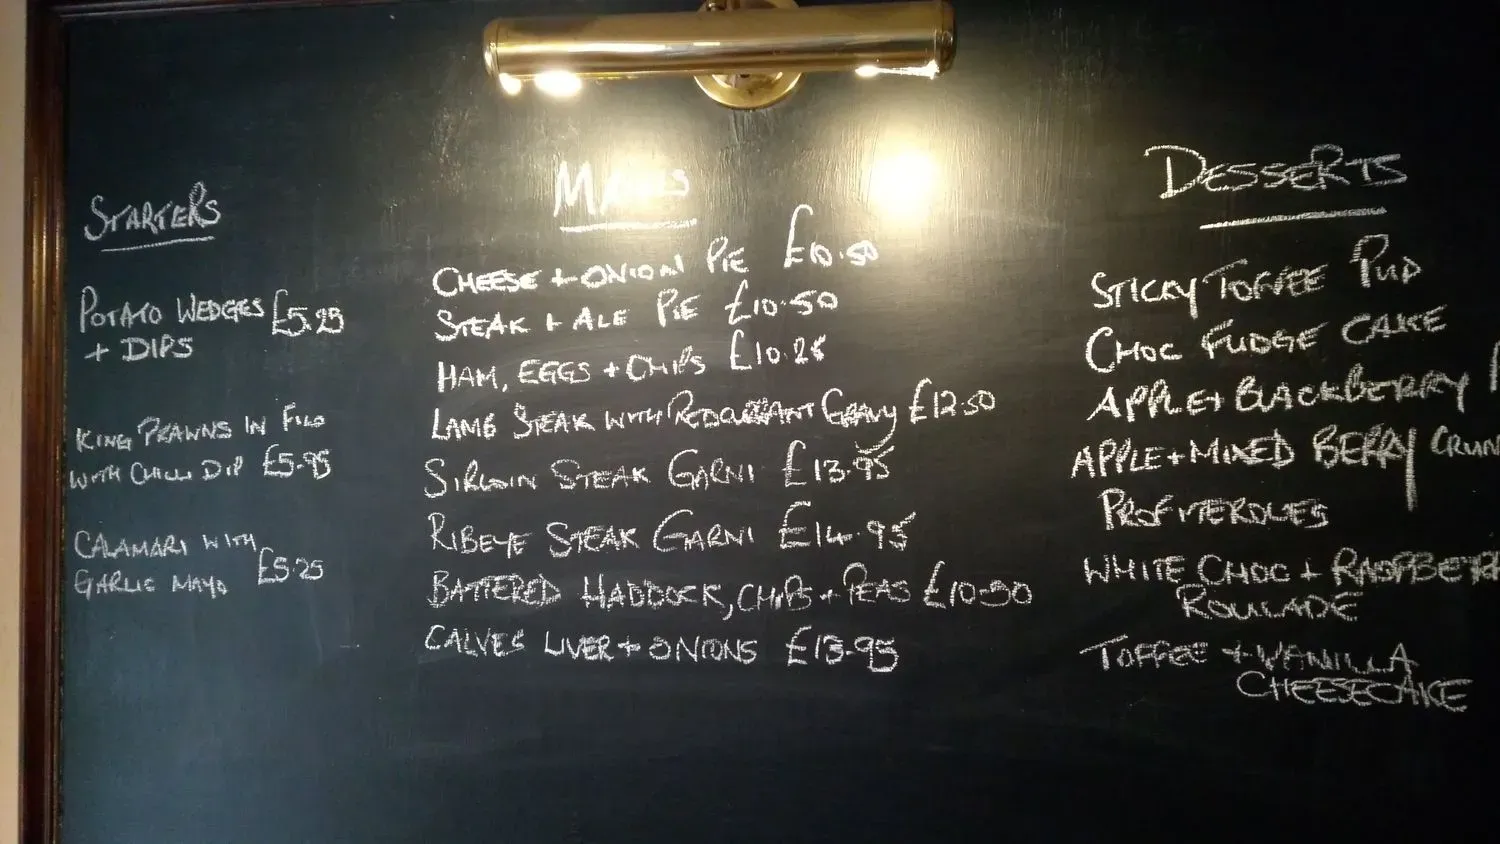 STARTERS
POTATO WEDGES £5.25
+ DIPS
KING PRAWNS IN FILO
WITH CHILLI DIP £5.95
CALAMARI WITH
GARLIC MAYO £5.25
MAINS
CHEESE + ONION PIE £10.50
STEAK + ALE PIE £10.50
HAM, EGGS + CHIPS £10.25
LAMB STEAK WITH REDCURRANT GRAVY £12.50
SIRLOIN STEAK GARNI £13.95
RIBEYE STEAK GARNI £14.95
BATTERED HADDOCK, CHIPS + PEAS £10.50
CALVES LIVER + ONIONS £13.95
DESSERTS
STICKY TOFFEE PUD
CHOC FUDGE CAKE
APPLE + BLACKBERRY
APPLE + MIXED BERRY CRUM
PROFITEROLES
WHITE CHOC + RASPBERR
ROULADE
TOFFEE + VANILLA
CHEESECAKE